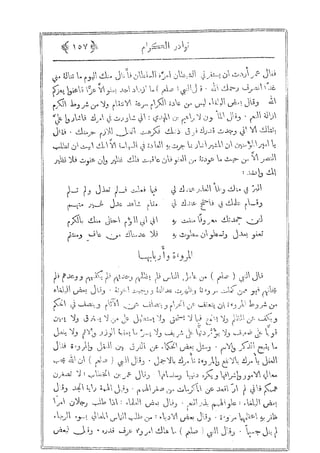 نوادر الكرام
﴿ ١٥٧ ﴾
فقال عمر أردت ان يستفزني الشيطان لعزة السلطان فأنال منك اليوم ما تناله مني
غدًا انصرف رحمك الله . قال النبي ( صلعم ) ما زاد احد بعفو الا عزًا فاعفوا يعزكم
الله وقال بعض البلغاء ليس من عادة الكرام سرعة الانتقام ولا من شروط الكرم
ازالة النعم . وقال المأمون لابراهيم بن المهدي : اني شاورت في امرك فأشاروا علي
بقتلك الا اني وجدت قدرك فوق ذنبك فكرهت القتل للازم حرمتك . فقال
يا امير المؤمنين ان المشير اشار بما جرت به العادة في السياسة الا انك ابيت ان تطلب
النصر الا من حيث ما عودته من العفو فان عاقبت فلك نظير وان عفوت فلا نظير
لك وانشد :
البر بي منك وطأ العذر عندك لي
فيما فعلت فلم تعذل ولم تلم
وقام علمك بي فاحتج عندك لي
مقام شاهد عدل غير متهم
لئن جحدتك معروفًا مننت به
اني لفي اللؤم احظى منك بالكرم
تعفو بعدل وتسطو ان سطوت به
فلا عدمناك من عاف ومنتقم
المروءة واربابها
قال النبي ( صلعم ) من عامل الناس فلم يظلمهم وحدثهم فلم يكذبهم ووعدهم فلم
يخلفهم فهو ممن كملت مروءته وظهرت عدالته ووجبت اخوته . وقال بعض البلغاء
من شروط المروءة ان يتعفف عن الحرام ويتصلف عن الآثام وينصف في الحكم
ويكف عن الظلم ولا يطمع فيما لا يستحق ولا يستطيل على من لا يسترق ولا يعين
قويًا على ضعيف ولا يؤثر دنيًا على شريف ولا يسر ما يعقبه الوزر والاثم ولا يفعل
ما يقبح الذكر والاسم . وسئل بعض الحكماء عن الفرق بين العقل والمروءة فقال
العقل يأمرك بالانفع والمروءة تأمرك بالاجمل . وقال النبي ( صلعم ) ان الله يحب
معالي الامور واشرافها ويكره دنيها وسفسافها . وقال عمر بن الخطاب : لا تصغرن
هممكم فاني لم ار اقعد عن المكرمات من صغر الهمم . وقيل الهمة راية الجد . وقال
بعض البلغاء : علو الهمم بذر النعم . وقال بعض العلماء : اذا طلب رجلان امرًا
ظفر به اعظمهما مروءة . وقال بعض الادباء : من طلب الناس المعالي بسوء الرجاء
لم ينل جسيمًا . وقال النبي ( صلعم ) ما هلك امرؤ عرف قدره . وقيل لبعض